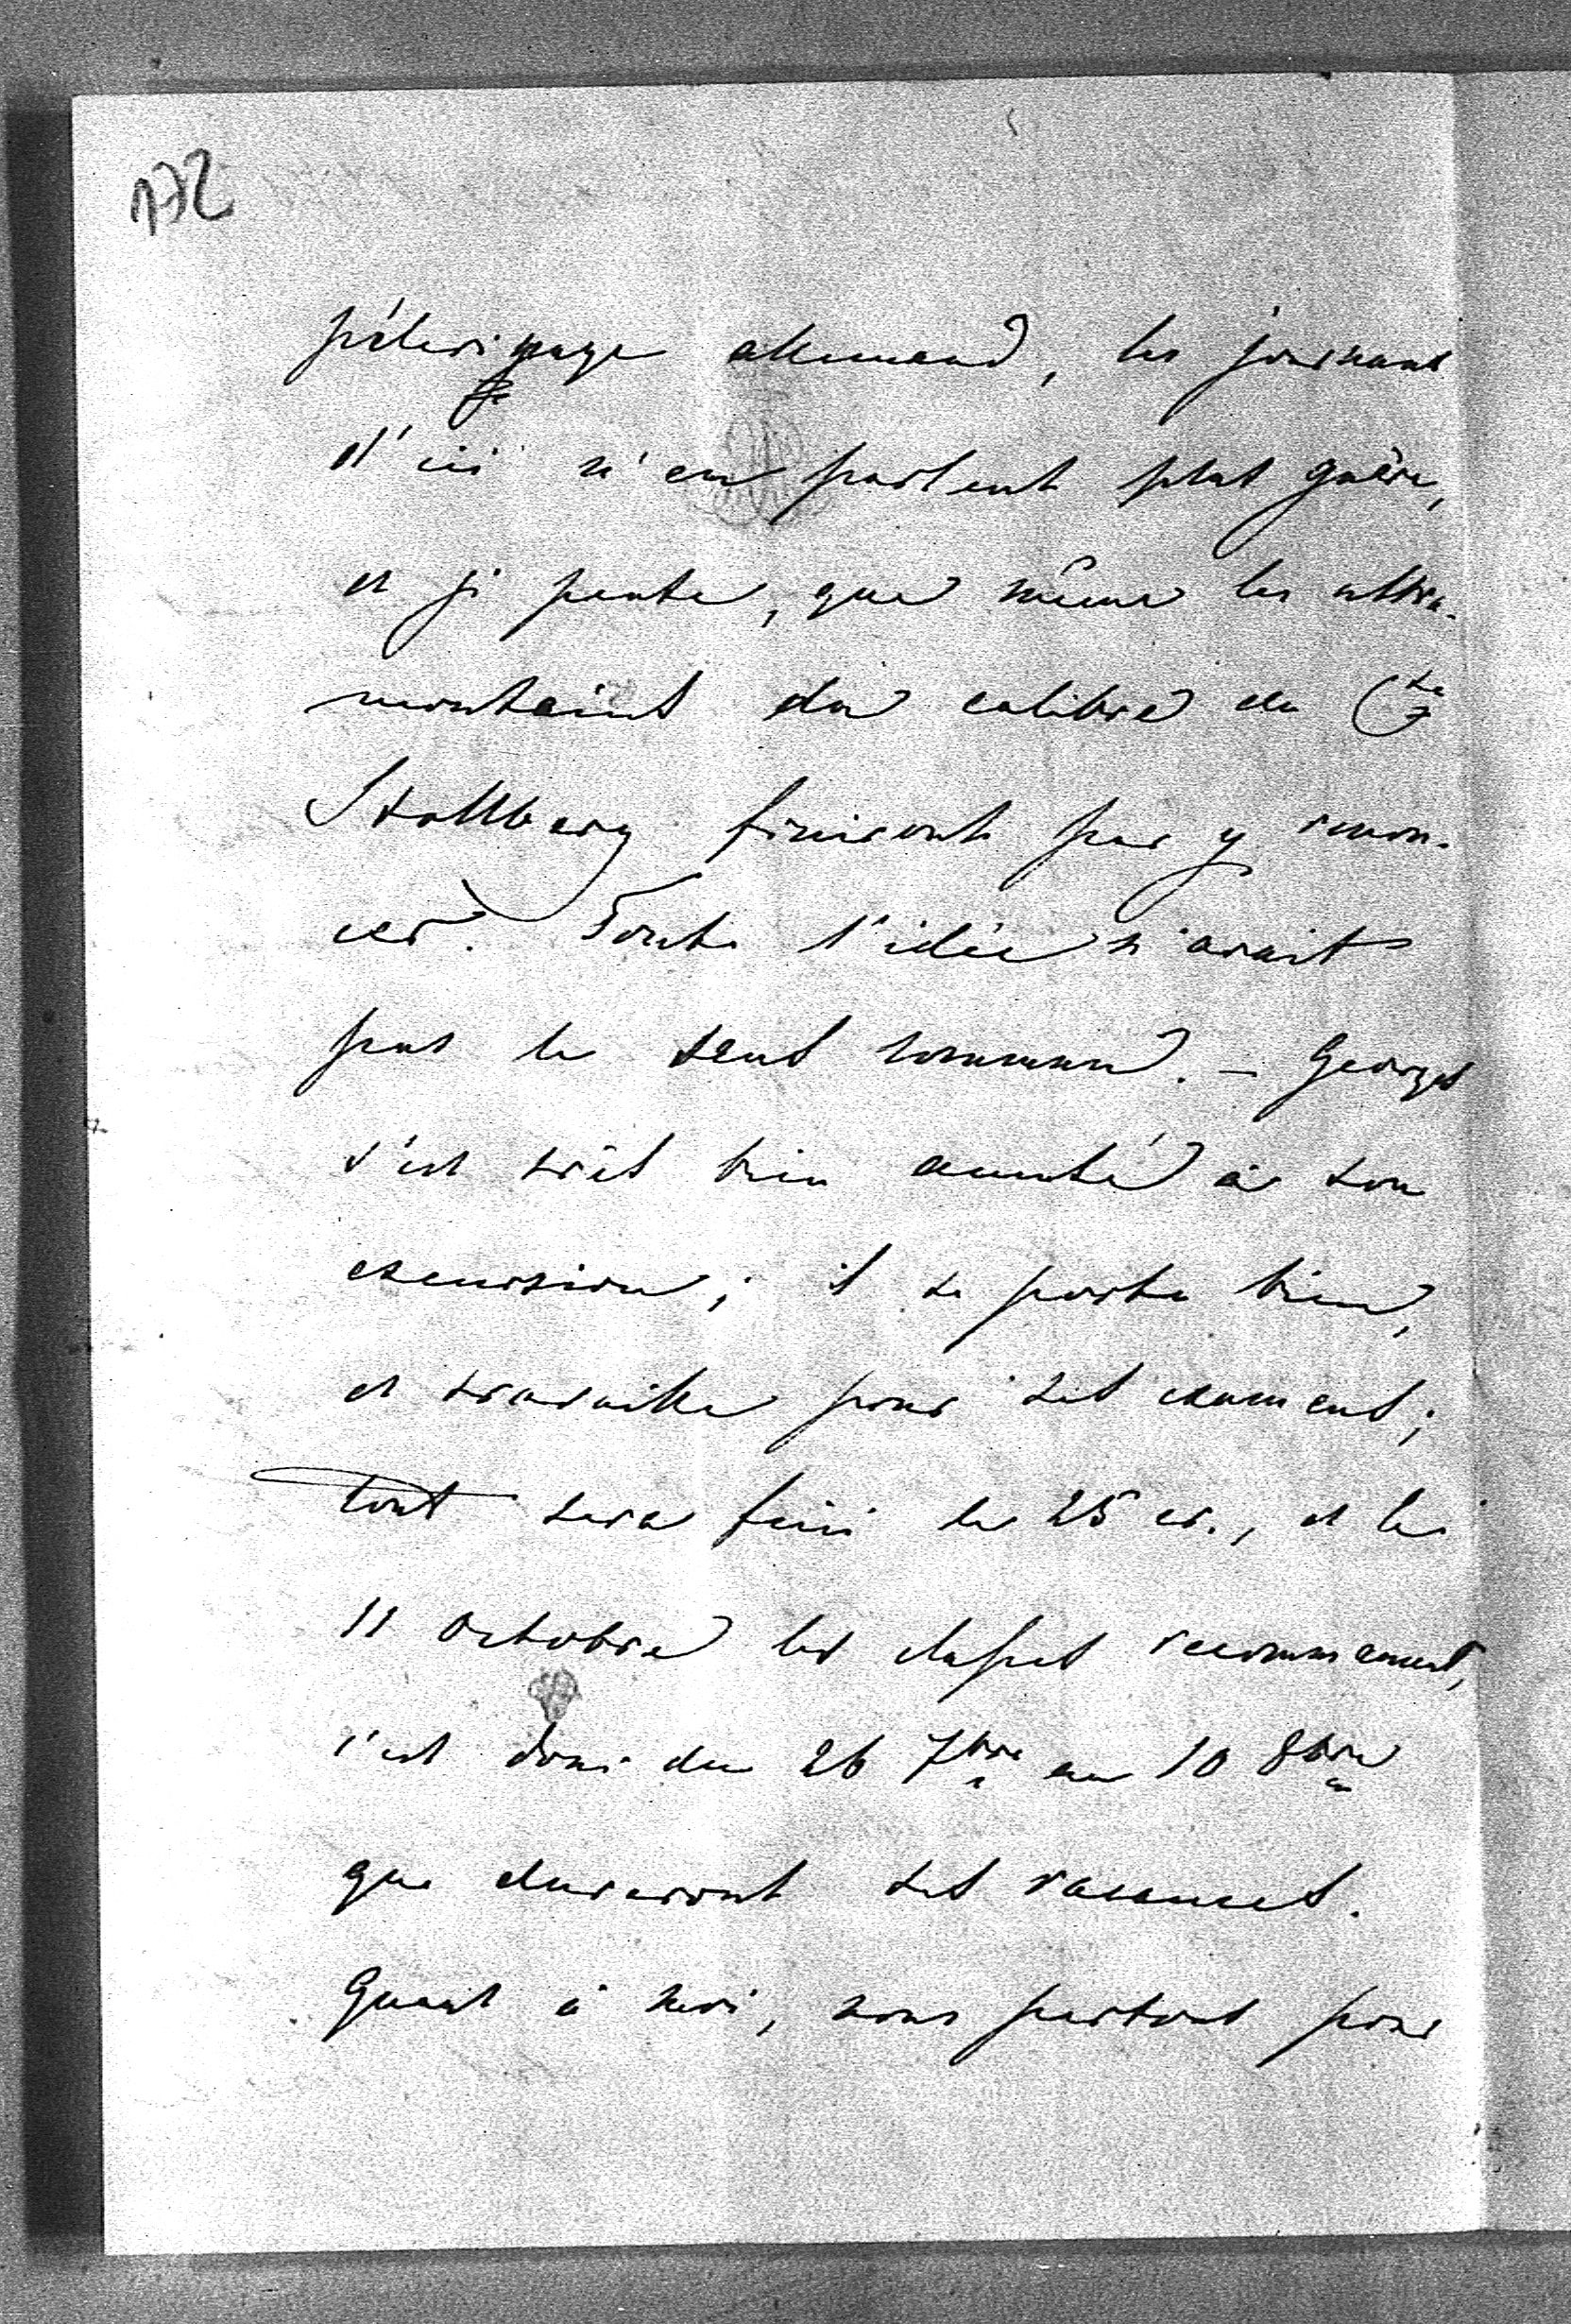 172
pélerinage allemand, les journaux
d'ici n'en parlent plus guère,
et je pense, que même les ultra-
montains du calibre du Cte
Stollberg finiront par y renon-
cer. Toute l'idée n'avait
pas le sens commun. – Georges
s'est très bien amusé à son
excursion; il se porte bien,
et travaille pour ses examens;
tout sera fini le 25 cr., et le
11 Octobre les classes recommencent,
c'est donc du 26 7bre au 10 8bre
que dureront ses vacances.
Quant à moi, nous partons pour